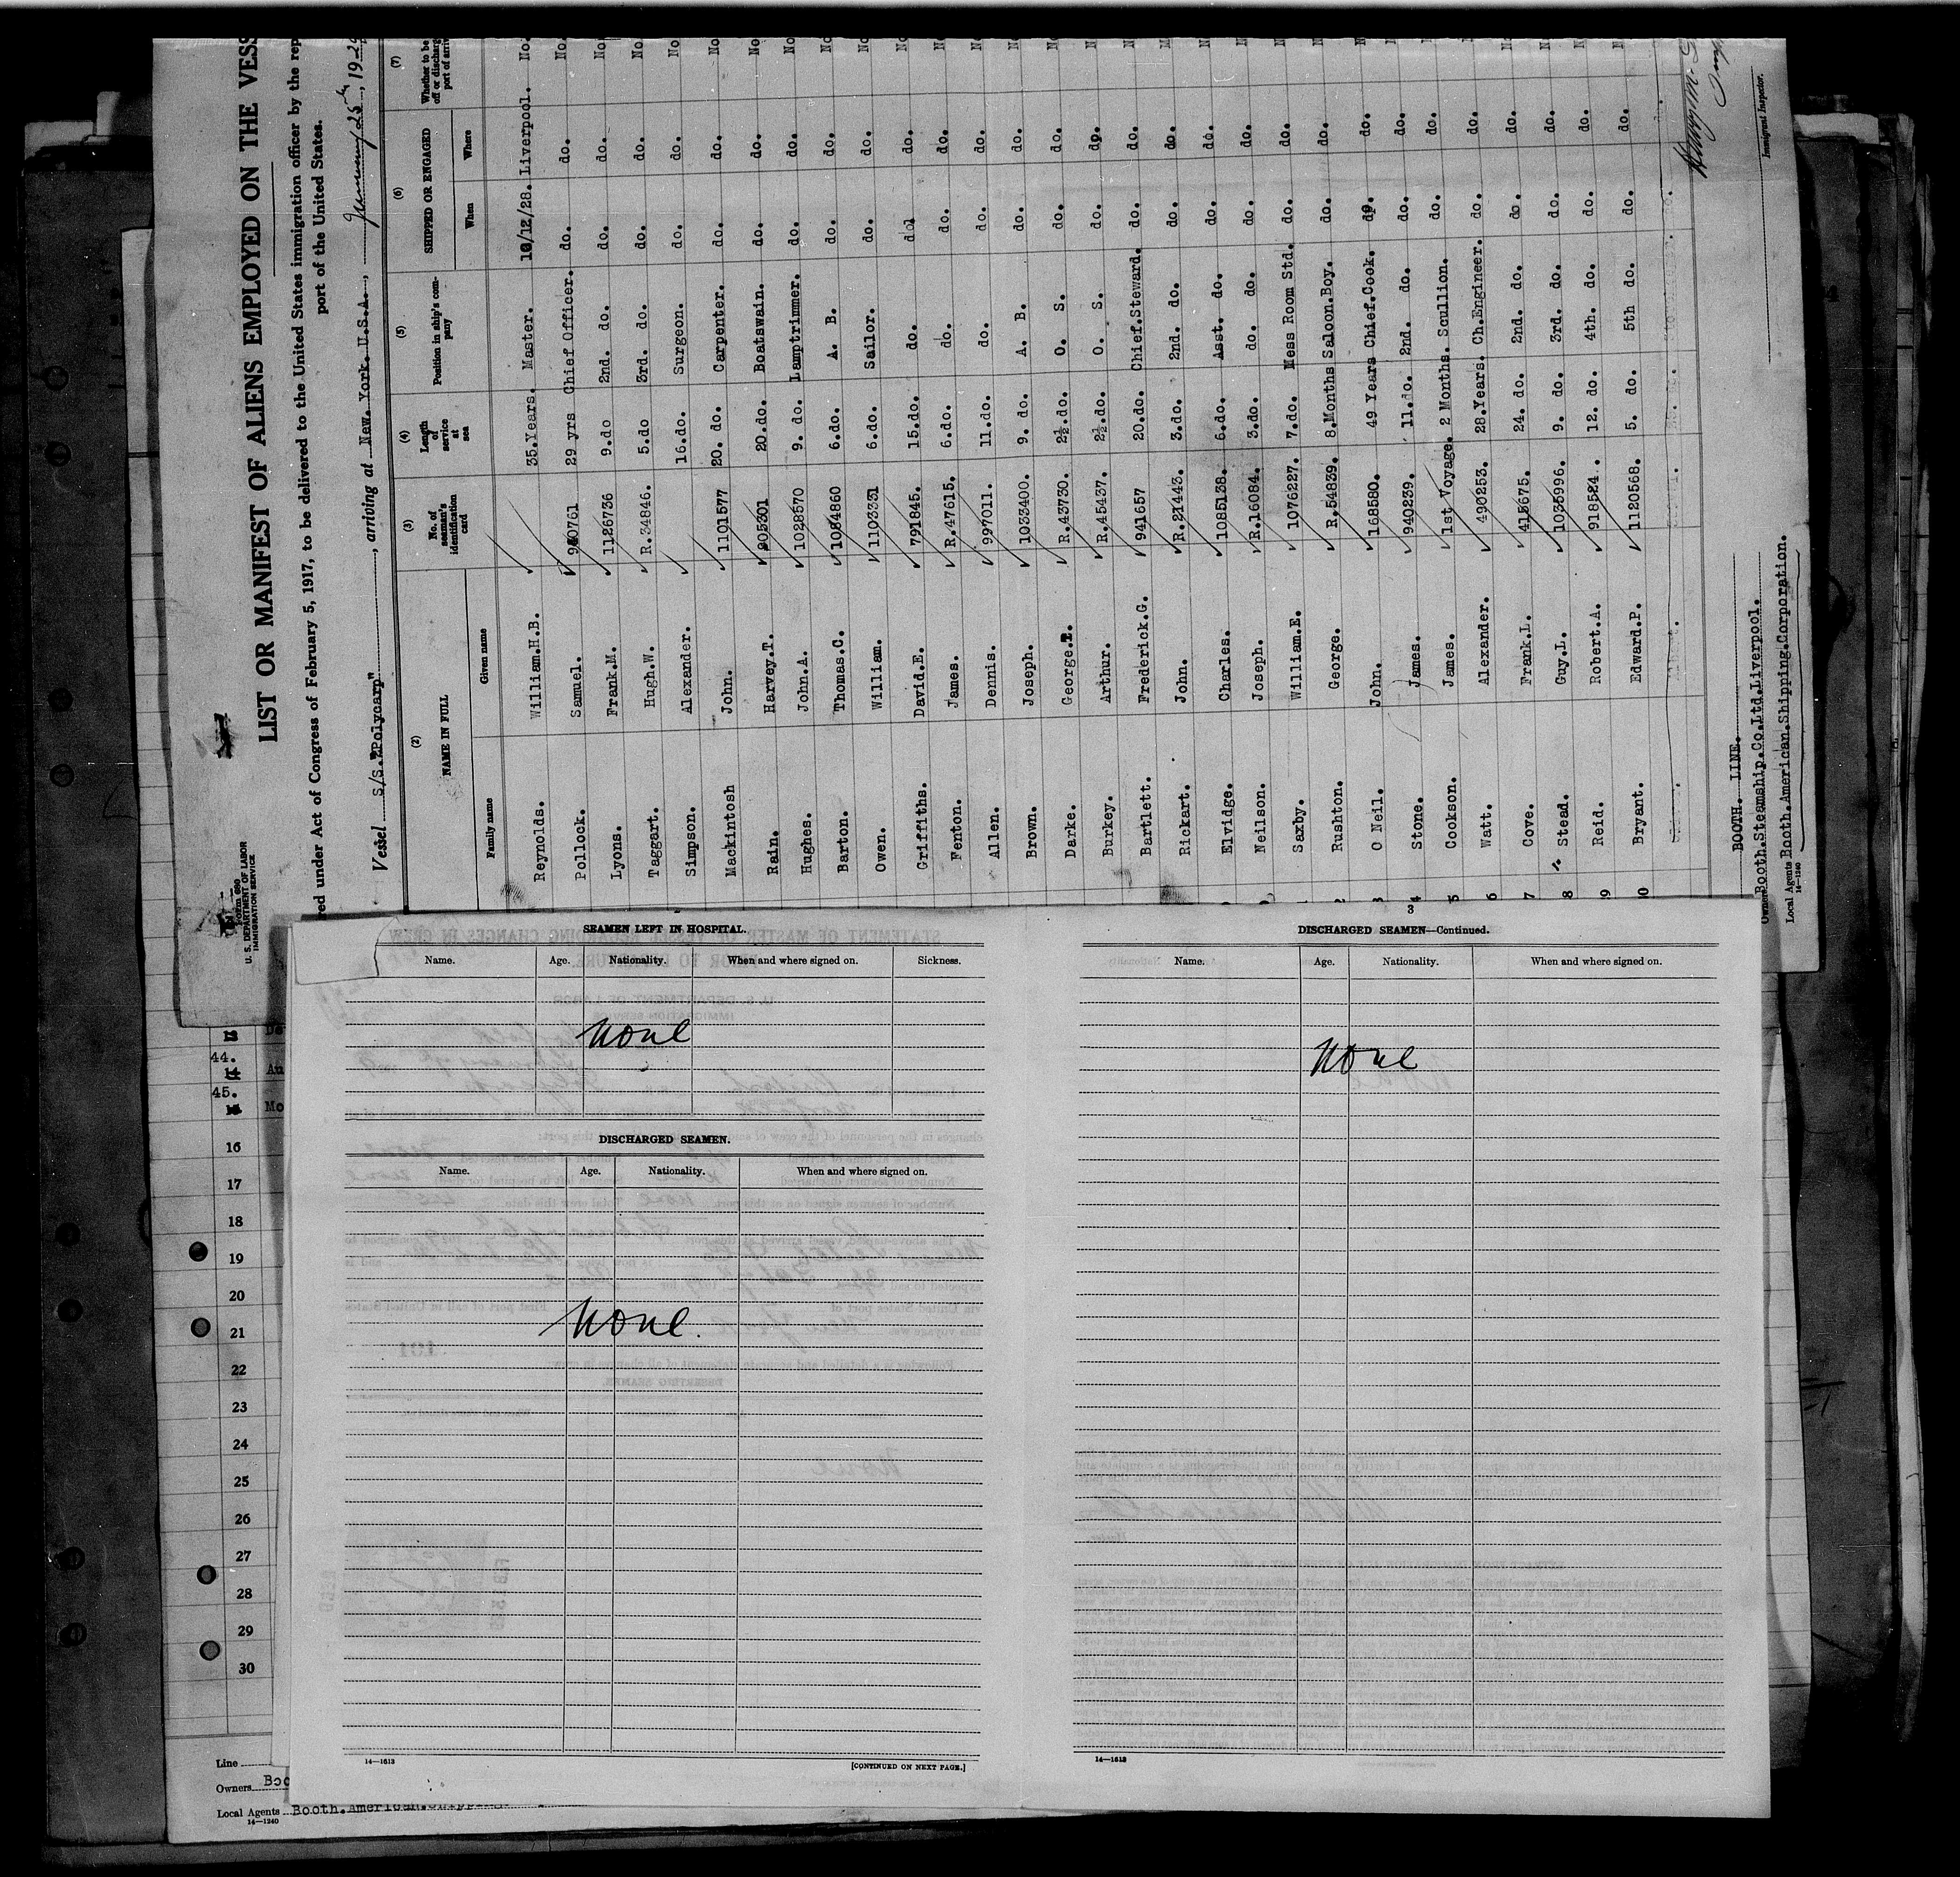 Form 680
U. S. DEPARTMENT OF LABOR
IMMIGRATION SERVICE
LIST OR MANIFEST OF ALIENS EMPLOYED ON THE VESS
red under Act of Congress of February 5, 1917, to be delivered to the United States immigration officer by the rep
port of the United States.
Vessel S/S."Polycarp" , arriving at New. York. U.S.A. , January 25th , 19 29
(2) (3) (4) (5) (6) (7)
NAME IN FULL No. of seaman's identification card Length of service at sea Position in ship's company SHIPPED OR ENGAGED Whether to be off or discharg port of arriv
Family name Given name When Where
Reynolds. William.H.B. 35.Years. Master. 10/12/28. Liverpool. No.
Pollock. Samuel. 940761 29 yrs Chief Officer. do. do. No.
Lyons. Frank.M. 1126736 9.do 2nd. do. do. do. No
Taggart. Hugh.W. R.34846. 5.do 3rd. do. do. do. No
Simpson. Alexander. 16.do. Surgeon. do. do. No
Mackintosh John. 1101577 20. do. Carpenter. do. do. No
Rain. Harvey.T. 905301 20.do. Boatswain. do. do. No
Hughes. John.A. 1028570 9. do. Lamptrimmer. do. do. No
Barton. Thomas.C. 1084860 6.do. A. B. do. do. No
Owen. William. 1103331 6.do. Sailor. do. do. No
Griffiths. David.E. 791845. 15.do. do. do do. No
Fenton. James. R.47615. 6.do. do. do. do. No
Allen. Dennis. 997011. 11.do. do. do. do. No
Brown. Joseph. 1033400. 9. do. A. B. do. do. No
Darke. George. R.43730. 2½.do. O. S. do. do. No
Burkey. Arthur. R.45437. 2½.do. O. S. do. do. N
Bartlett. Frederick.G. 941657 20.do. Chief.Steward. do. do. N
Rickart. John. R.21443. 3.do. 2nd. do. do. do.
Elvidge. Charles. 1085138. 6.do. Asst. do. do. do. N
Neilson. Joseph. R.16084. 3.do. do. do. do. do. N
Saxby. William.E. 1076227. 7.do. Mess Room Std. do. do. N
Rushton. George. R.54839. 8.Months Saloon.Boy. do. do. N
O Neil. John. 168580. 49 Years Chief.Cook. do. do. N
Stone. James. 940239. 11.do. 2nd. do. do. do. N
Cookson. James. 1st Voyage. 2 Months. Scullion. do. do. N
Watt. Alexander. 490253. 28.Years. Ch.Engineer. do. do. N
7 Cove. Frank.L. 415675. 24. do. 2nd. do. do. do. N
8 Stead. Guy.L. 1035996. 9. do. 3rd. do. do. do. N
9 Reid. Robert.A. 918524. 12. do. 4th. do. do. do. N
Bryant. Edward.P. 1120568. 5. do. 5th do. do. do. N
BOOTH. LINE.
Owners Booth.Steamship.Co.Ltd.Liverpool.
Local Agents Booth.American.Shipping.Corporation.
14—1240
Immigrant Inspector.
SEAMEN LEFT IN HOSPITAL.
Name. Age. Nationality. When and where signed on. Sickness.
none
DISCHARGED SEAMEN.
Name. Age. Nationality. When and where signed on.
none.
14—1613
[CONTINUED ON NEXT PAGE.]
3
DISCHARGED SEAMEN—Continued.
Name. Age. Nationality. When and where signed on.
none
14—1613
44.
14 Au
45.
Mo
16
17
18
19
20
21
22
23
24
25
26
27
28
29
30
Line
Owners Boo
Local Agents Booth.American.
14—1240